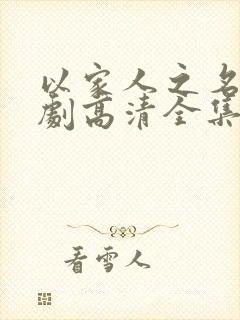 以家人之名
劇高清全集
看雪人